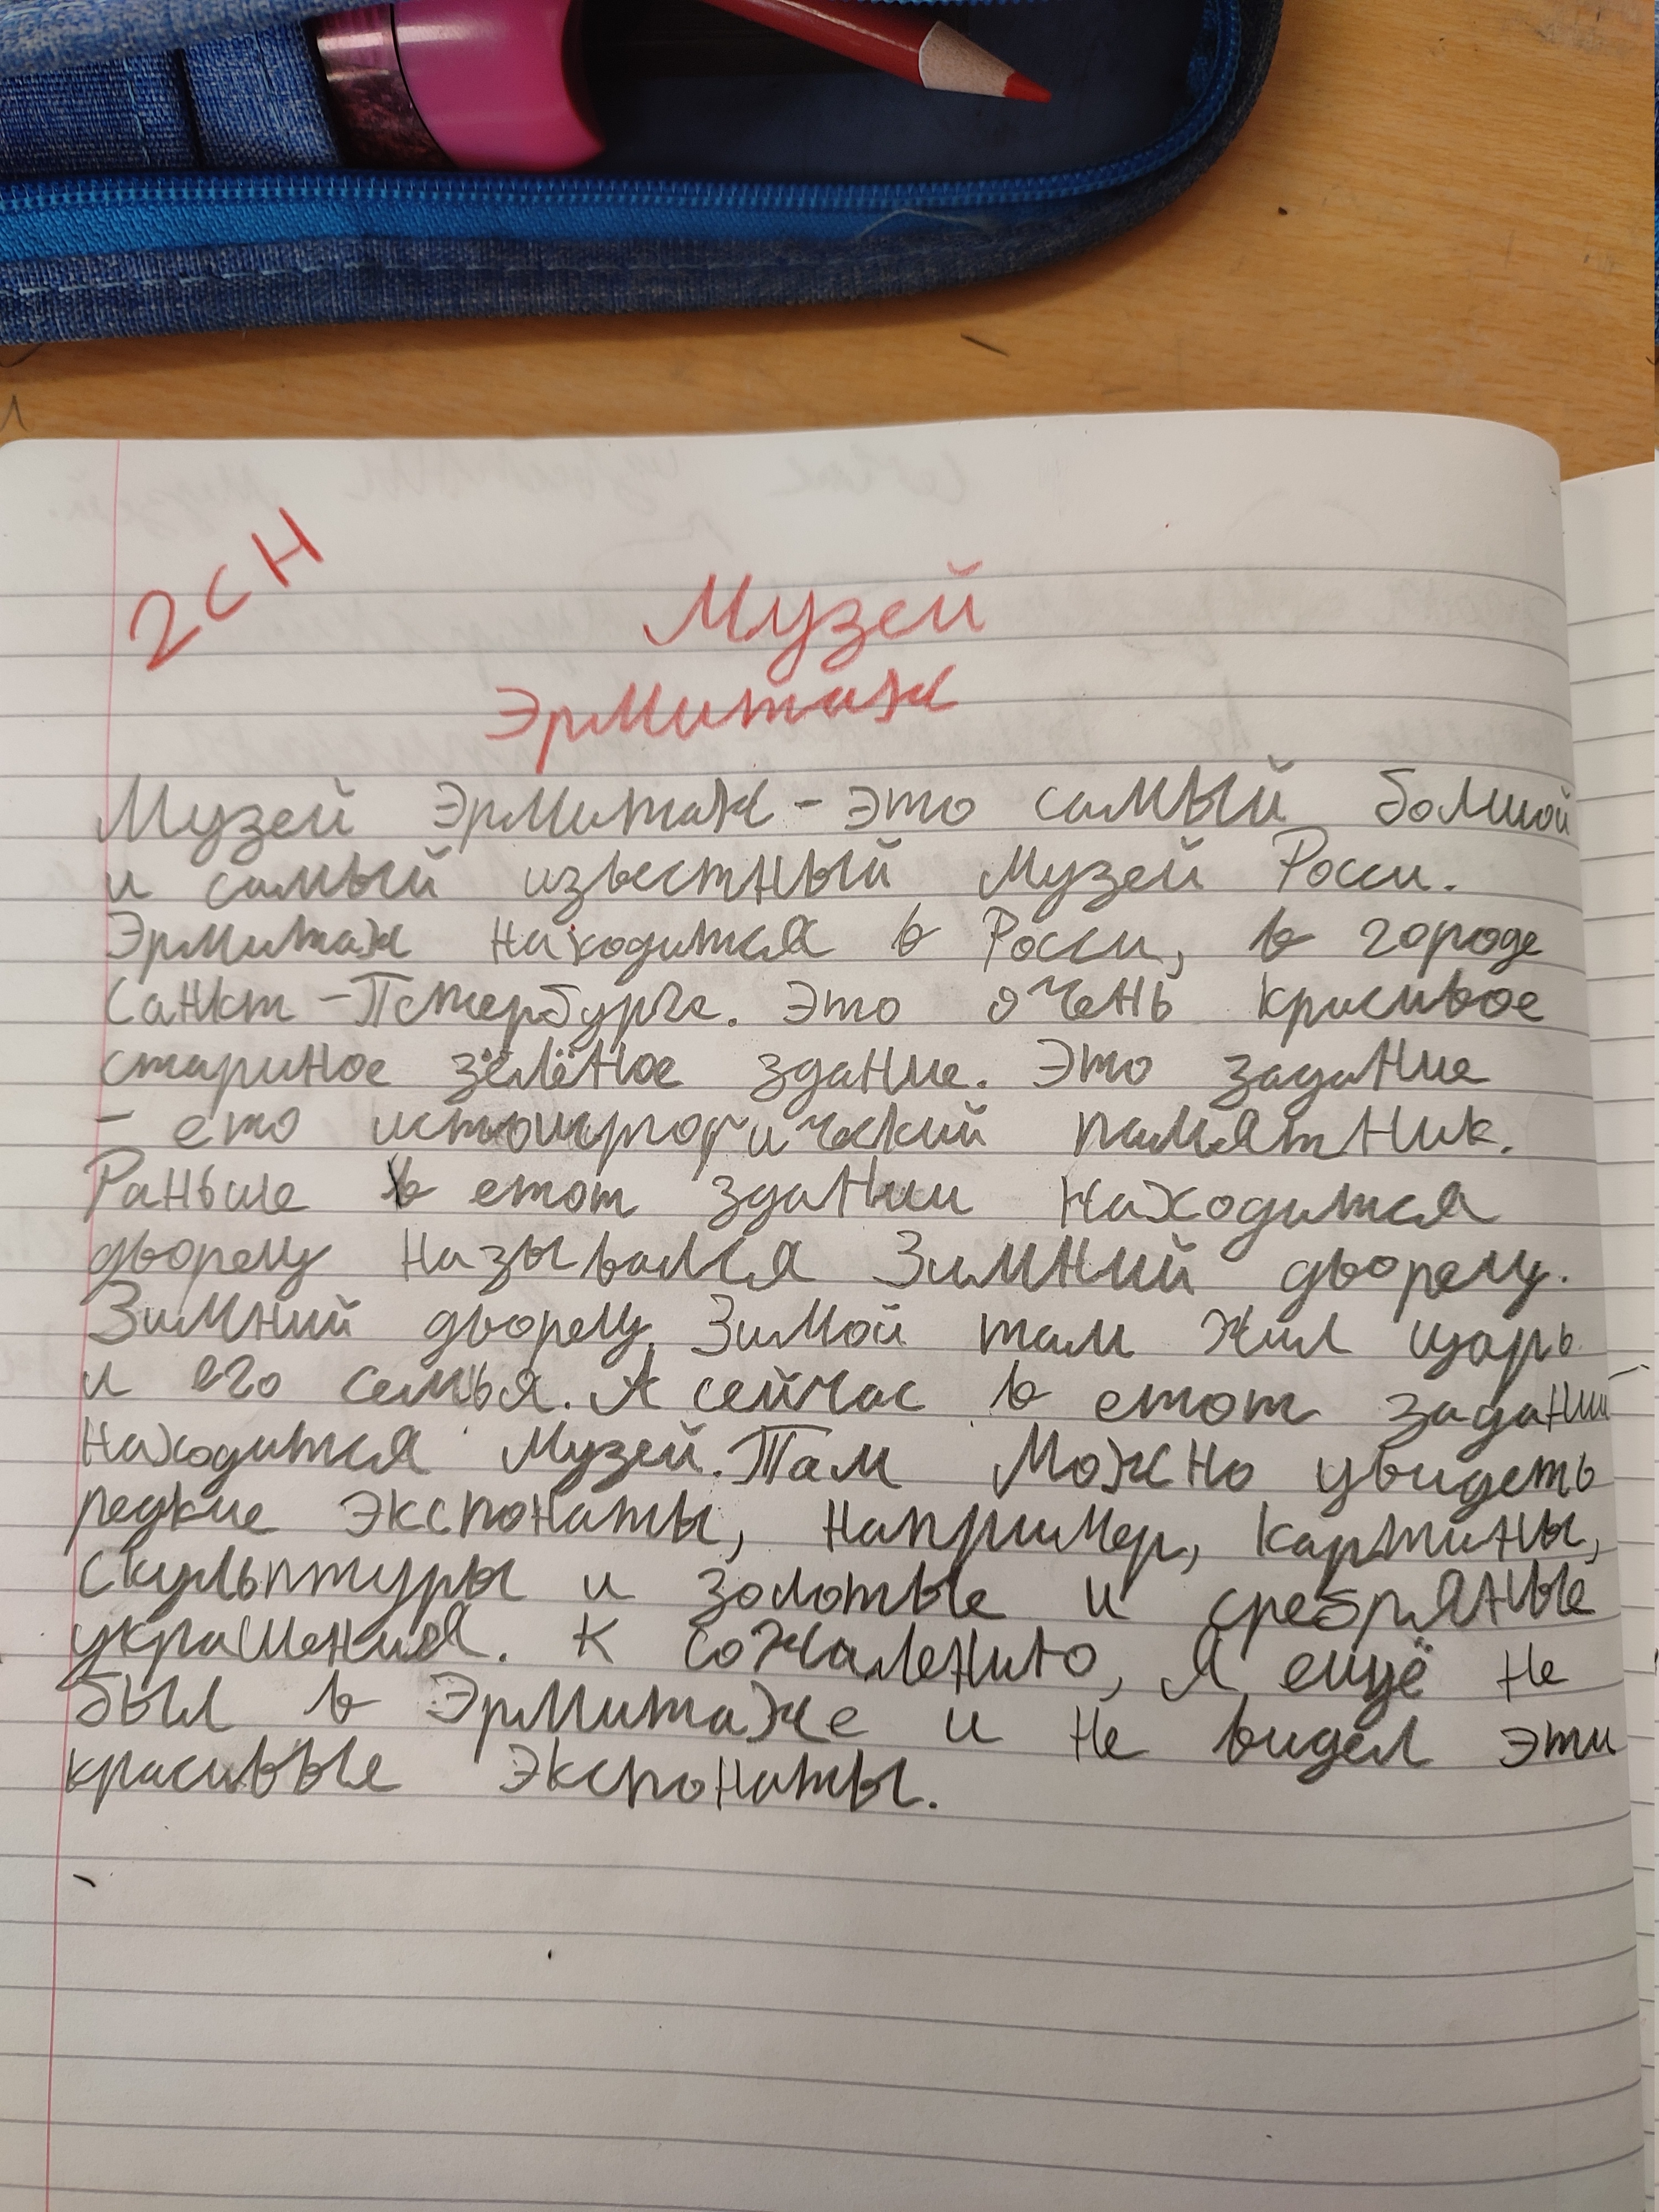 2 CH
Музей
Эрмитаж
Музей Эрмитаж - это самый болшой
и самый известный Музей Росси.
Эрмитаж находится в Росси, в городе
Санкт-Петербурге. Это очень красивое
стариное зелёное здание. Это задание
- ето памятник.
Раньше в етот здании находится
дворец назывался Зимний дворец.
Зимний дворец. Зимой там жил царь
и его семья. А сейчас в етот задании
находится Музей. Там можно увидеть
редкие экспонаты, например, картины,
скульптуры и золотые и сребряные
украшения. К сожалению, я ещё не
был в Эрмитаже и не видел эти
красивые экспонаты.